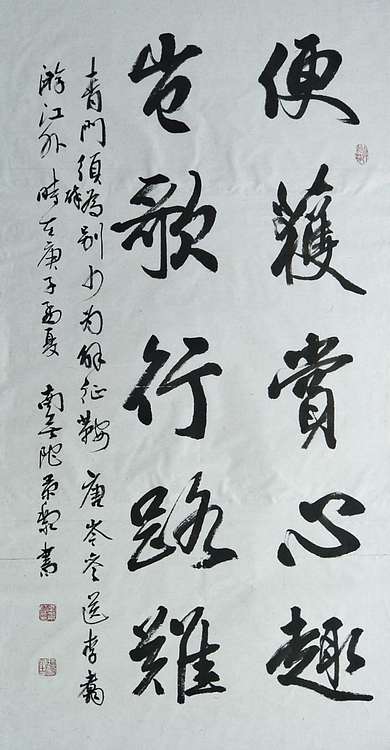 便獲賞心趣
豈歌行路難
青門須醉為别少为解征鞍 唐岑參送李翥
游江外 時在庚子孟夏 書